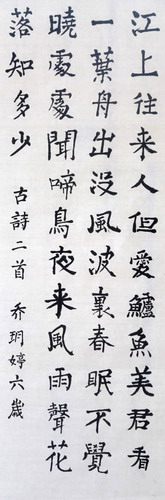 江上往来人但愛鱸魚美君看
一葉舟出没風波裏春眠不覺
曉處處聞啼鳥夜来風雨聲花
落知多少
古詩二首 乔玥婷六歲